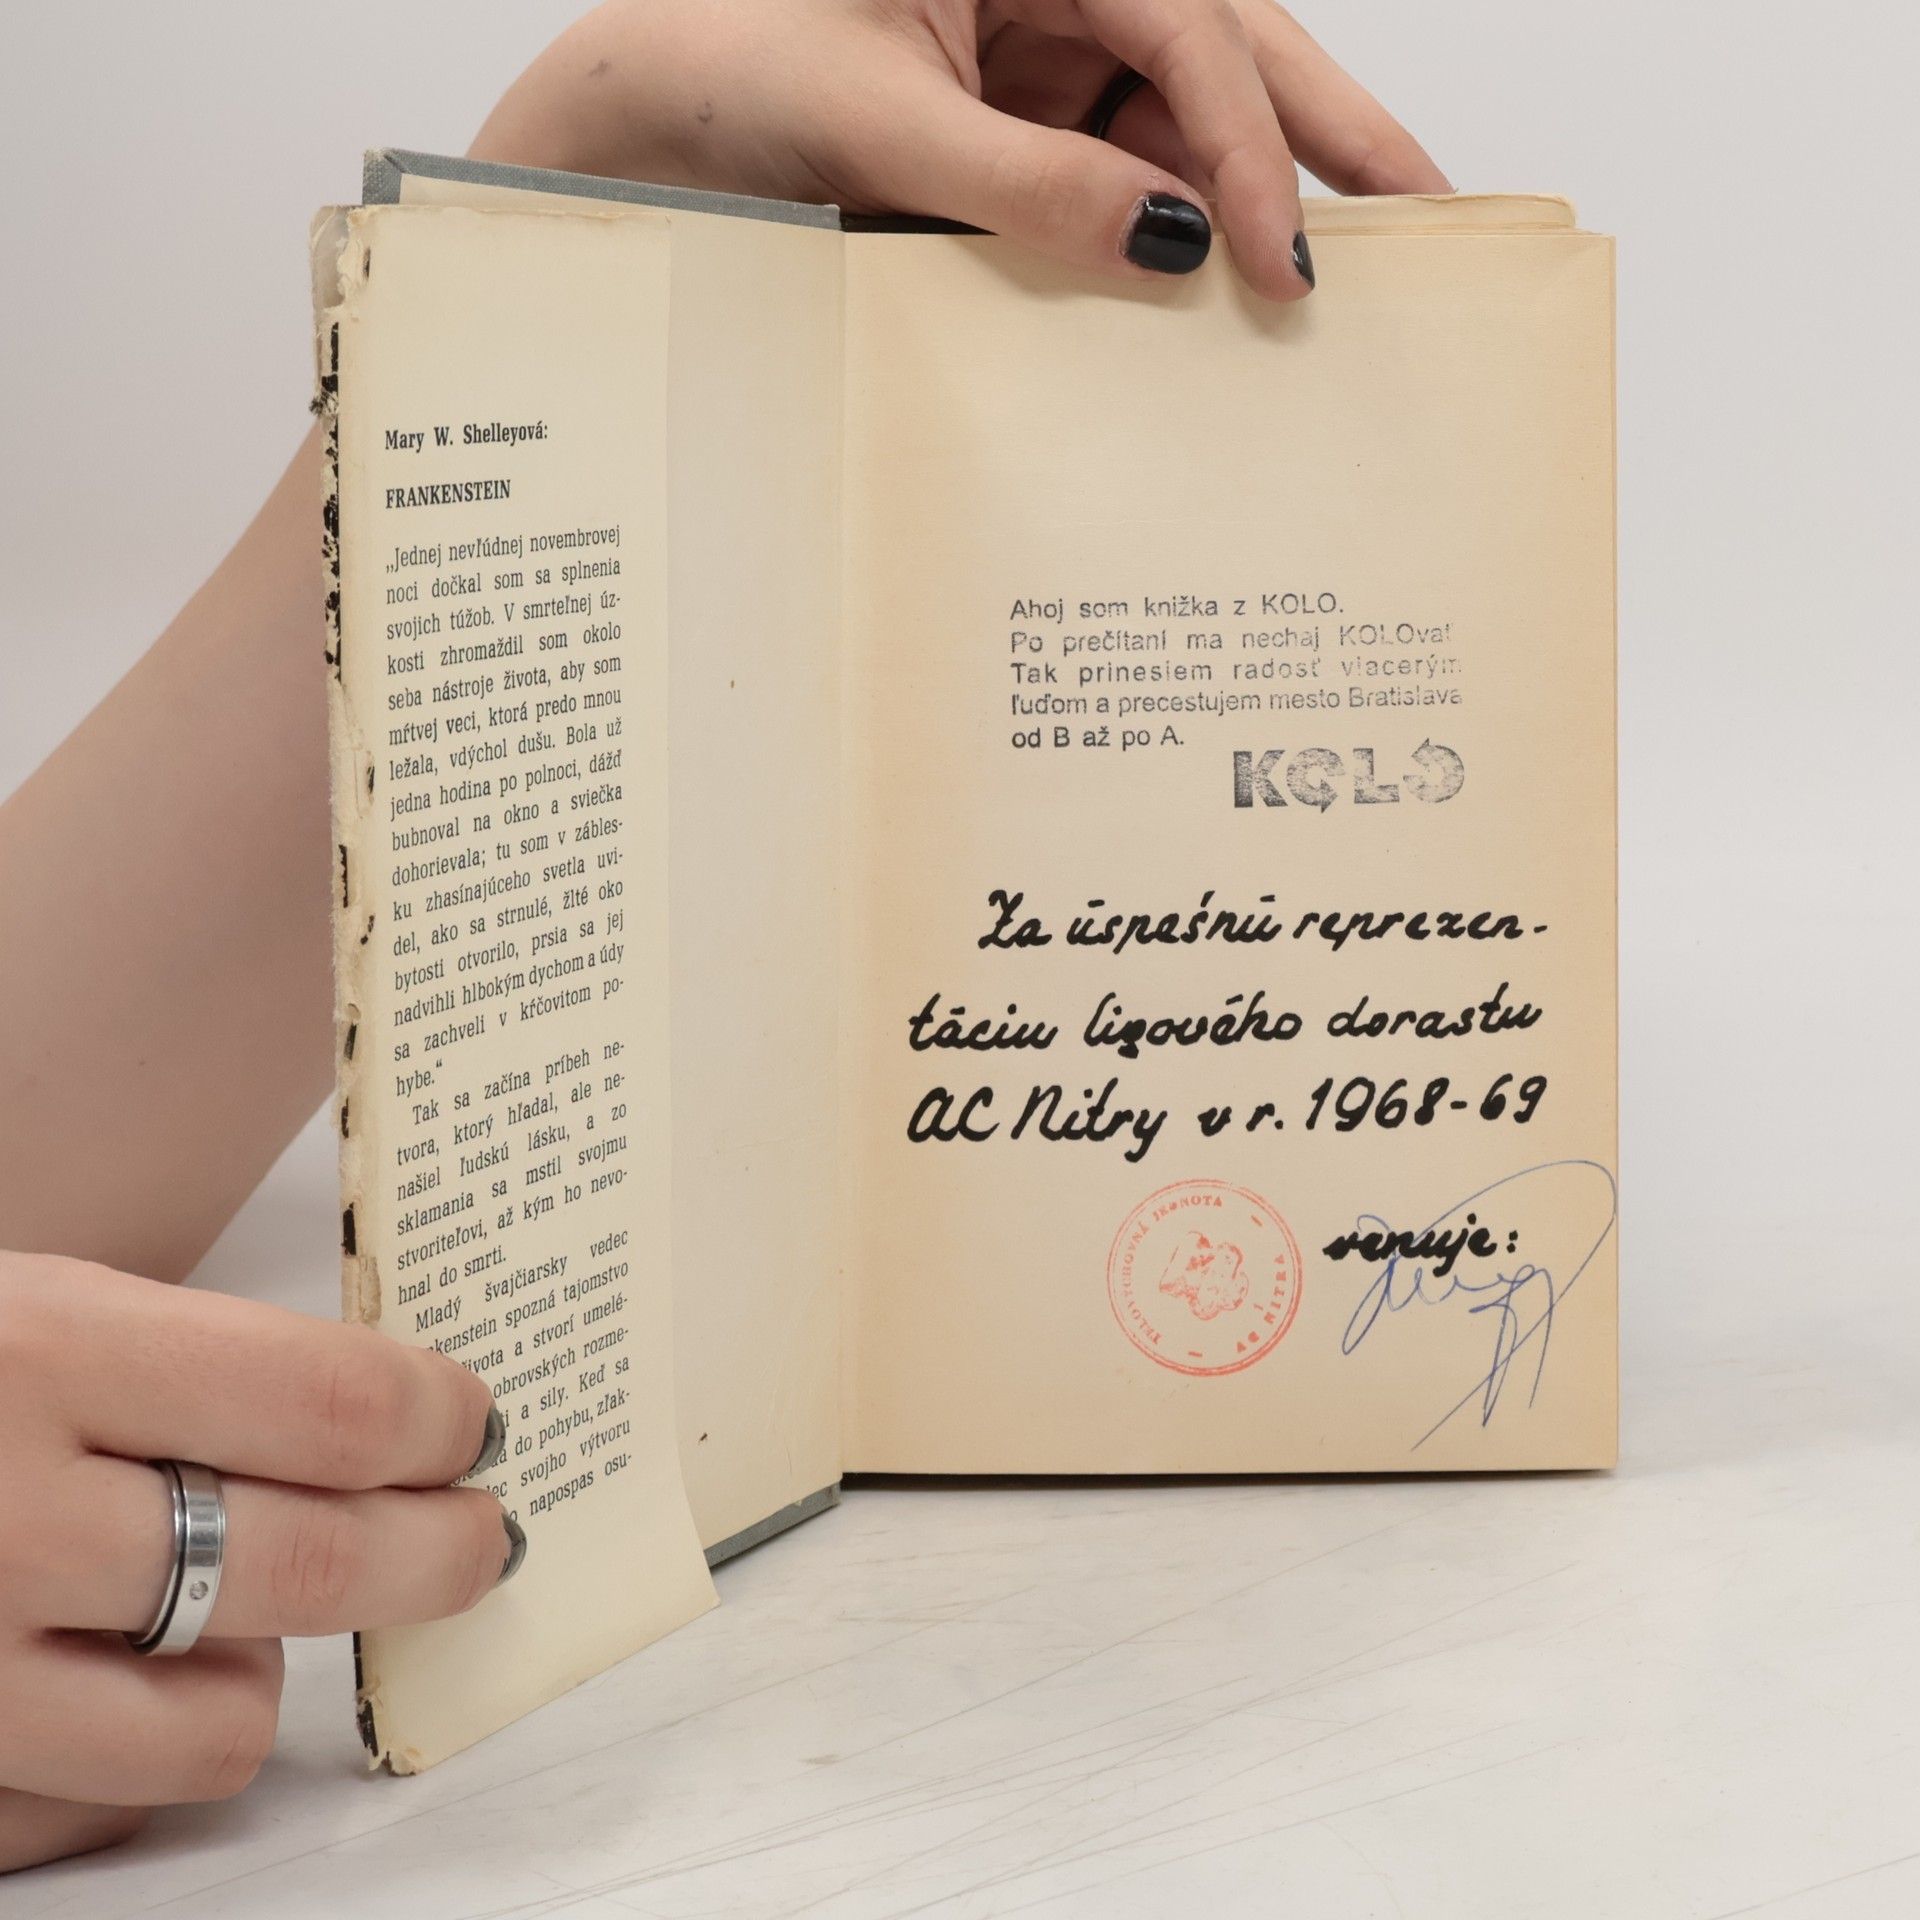 Mary W. Shelleyová:
FRANKENSTEIN
„Jednej nevľúdnej novembrovej
noci dočkal som sa splnenia
svojich túžob. V smrteľnej úz-
kosti zhromaždil som okolo
seba nástroje života, aby som
mŕtvej veci, ktorá predo mnou
ležala, vdýchol dušu. Bola už
jedna hodina po polnoci, dážď
bubnoval na okno a sviečka
dohorievala; tu som v zábles-
ku zhasínajúceho svetla uvi-
del, ako sa strnulé, žlté oko
bytosti otvorilo, prsia sa jej
nadvihli hlbokým dychom a údy
sa zachveli v kŕčovitom po-
hybe.“
Tak sa začína príbeh ne-
tvora, ktorý hľadal, ale ne-
našiel ľudskú lásku, a zo
sklamania sa mstil svojmu
stvoriteľovi, až kým ho nevo-
hnal do smrti.
Mladý švajčiarsky vedec
nkenstein spozná tajomstvo
života a stvorí umelé-
obrovských rozme-
ti a sily. Keď sa
do pohybu, zľak-
ec svojho výtvoru
napospas osu-
Ahoj som knižka z KOLO.
Po prečítaní ma nechaj KOLOvať
Tak prinesiem radosť viacerým
ľuďom a precestujem mesto Bratislava
od B až po A.
KOLO
Za úspešnú reprezen-
táciu ligového dorastu
AC Nitry v r. 1968-69
venuje:
TELOVÝCHOVNÁ JEDNOTA
NITRA